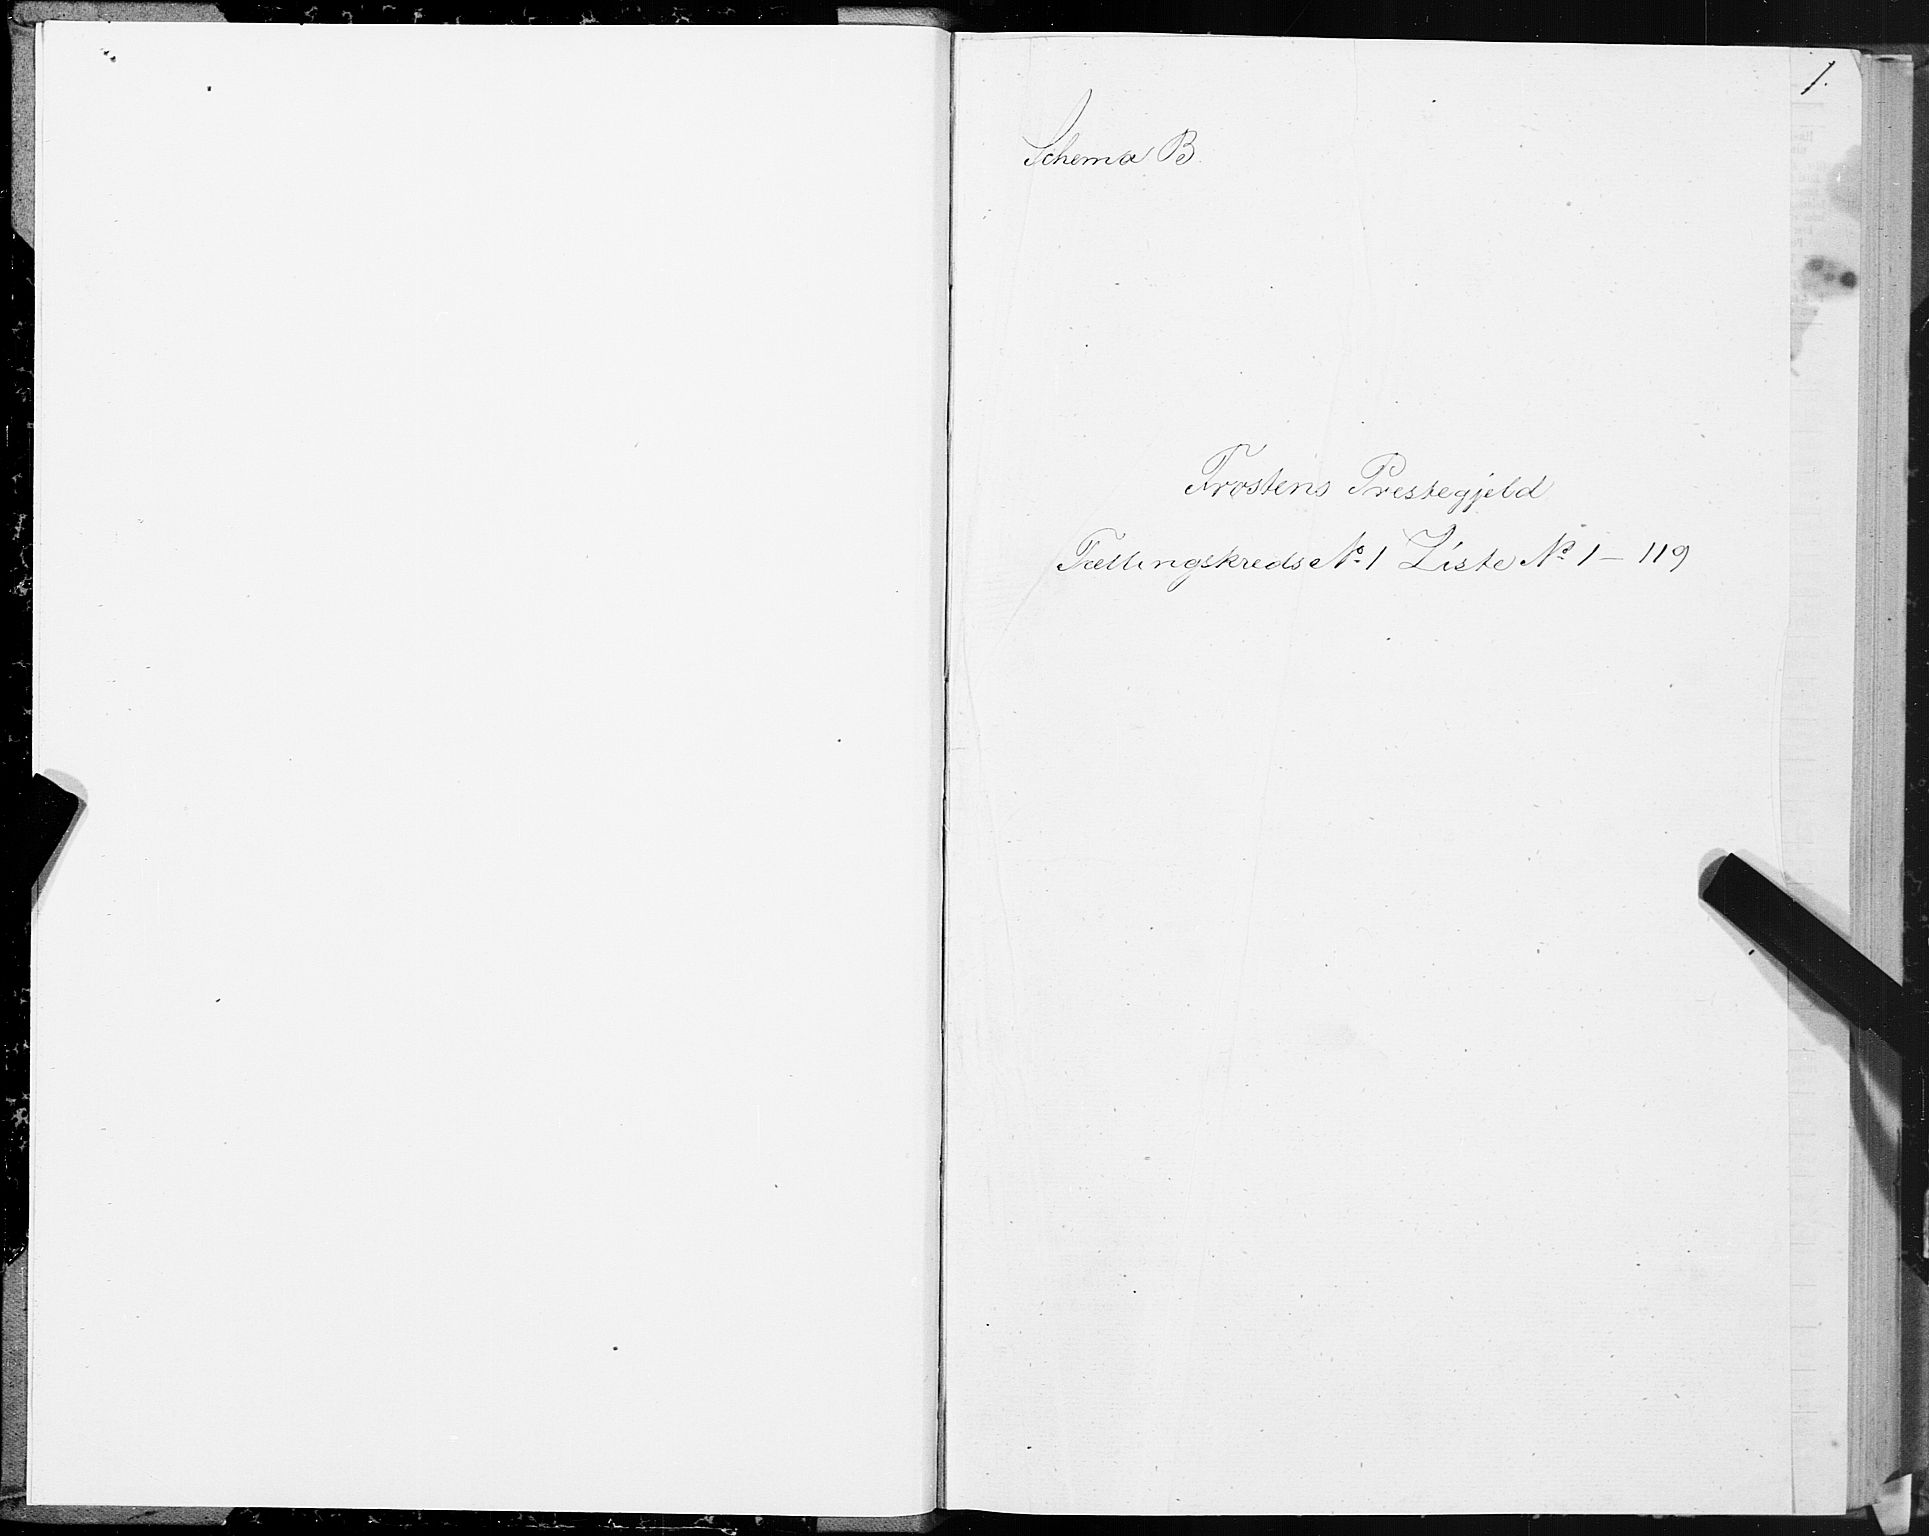 1.
Schema B.
Frostens Prestegjeld
Tællingskreds No. 1 Liste No. 1 – 119